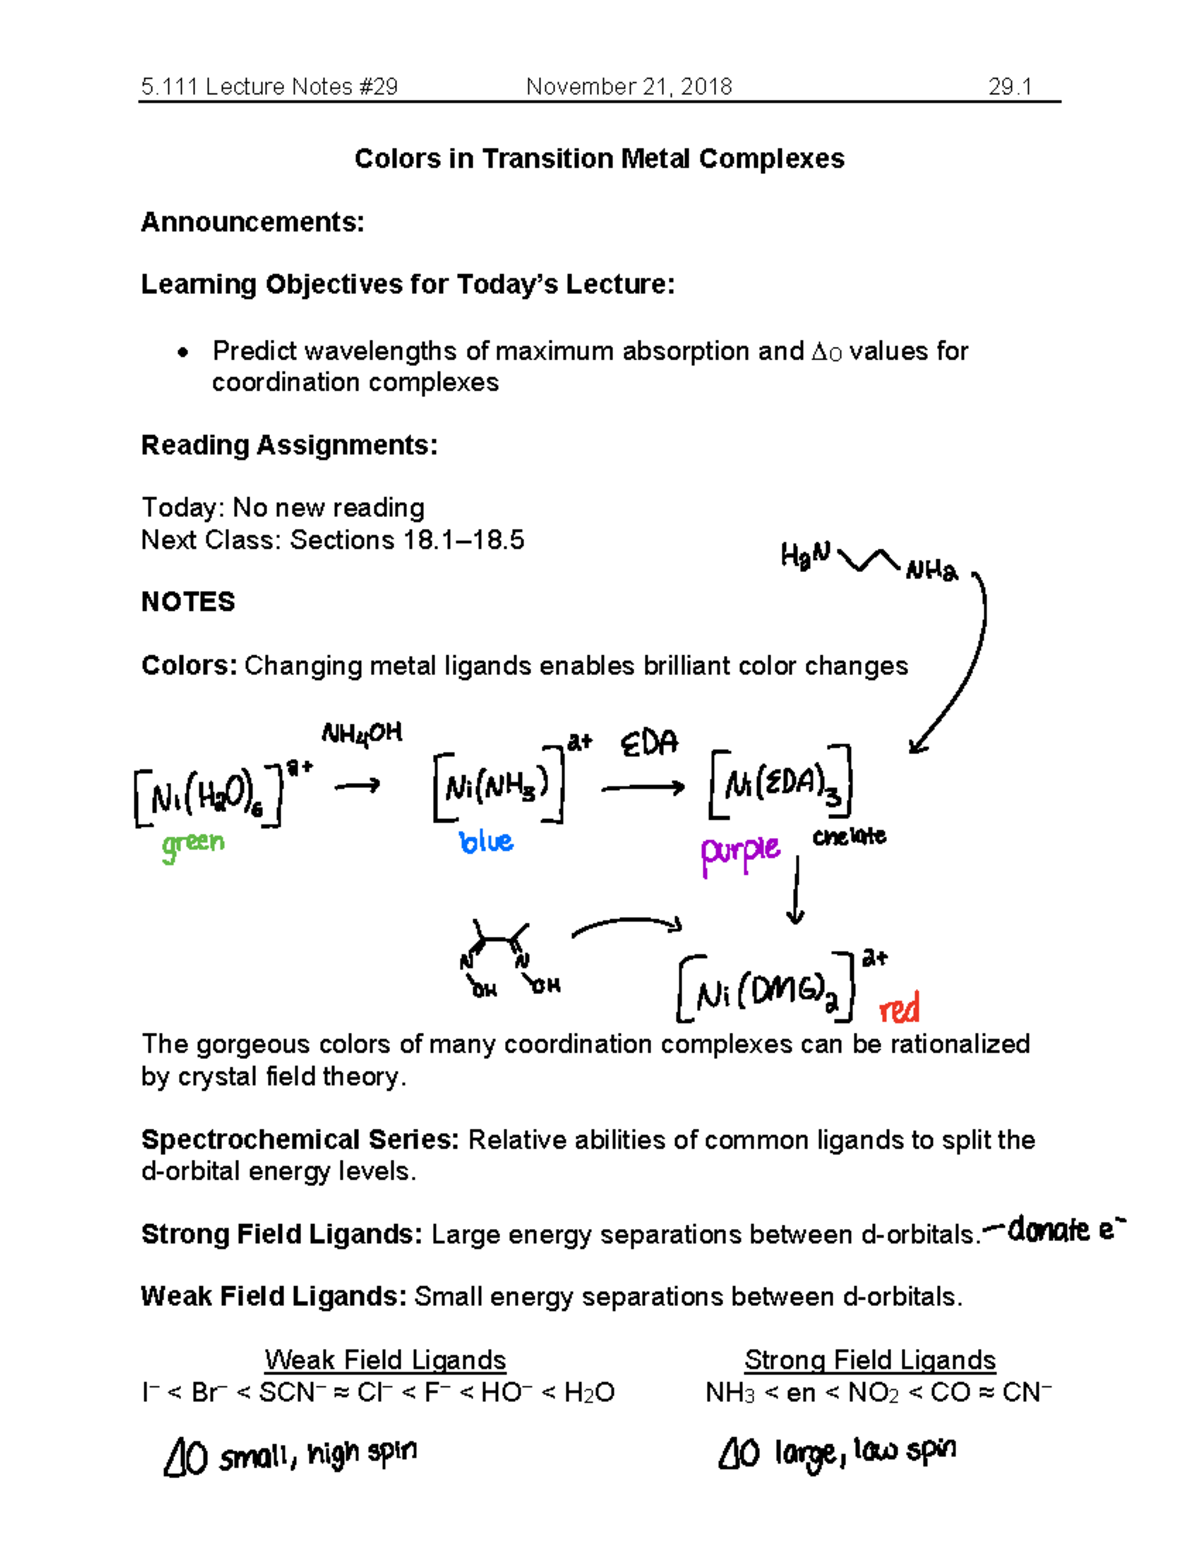 5.111 Lecture Notes #29 November 21, 2018 29.1
Colors in Transition Metal Complexes
Announcements:
Learning Objectives for Today's Lecture:
• Predict wavelengths of maximum absorption and ΔO values for
coordination complexes
Reading Assignments:
Today: No new reading
Next Class: Sections 18.1–18.5
H2N NH2
NOTES
Colors: Changing metal ligands enables brilliant color changes
NH4OH EDA
[Ni(H2O)6]2+ → [Ni(NH3)]2+ → [Ni(EDA)3]
green blue purple chelate
N N
OH OH
[Ni(DMG)2]2+ red
The gorgeous colors of many coordination complexes can be rationalized
by crystal field theory.
Spectrochemical Series: Relative abilities of common ligands to split the
d-orbital energy levels.
Strong Field Ligands: Large energy separations between d-orbitals. – donate e⁻
Weak Field Ligands: Small energy separations between d-orbitals.
Weak Field Ligands Strong Field Ligands
I⁻ < Br⁻ < SCN⁻ ≈ Cl⁻ < F⁻ < HO⁻ < H2O NH3 < en < NO2 < CO ≈ CN⁻
ΔO small, high spin ΔO large, low spin